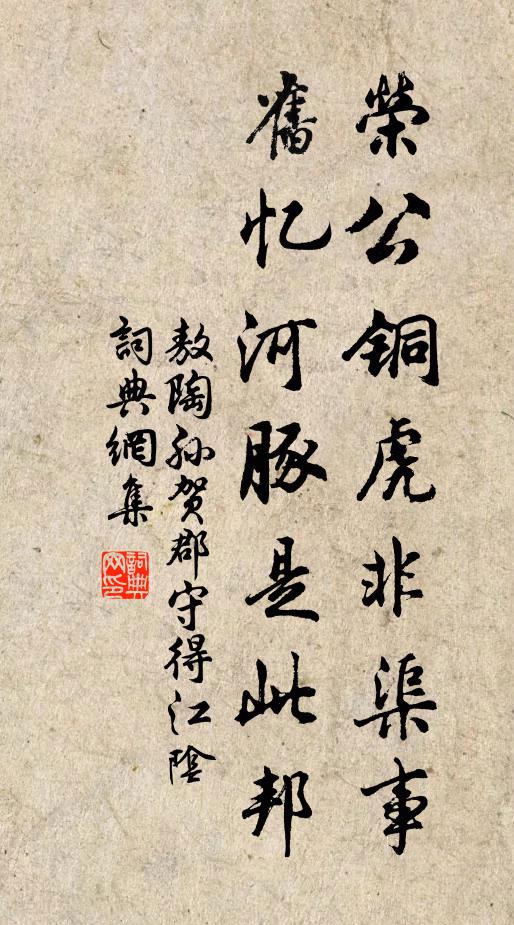 榮公铜虎非渠事
舊忆河豚是此邦
敖陶孙贺郡守得江陰
詞典網集
詞典網印